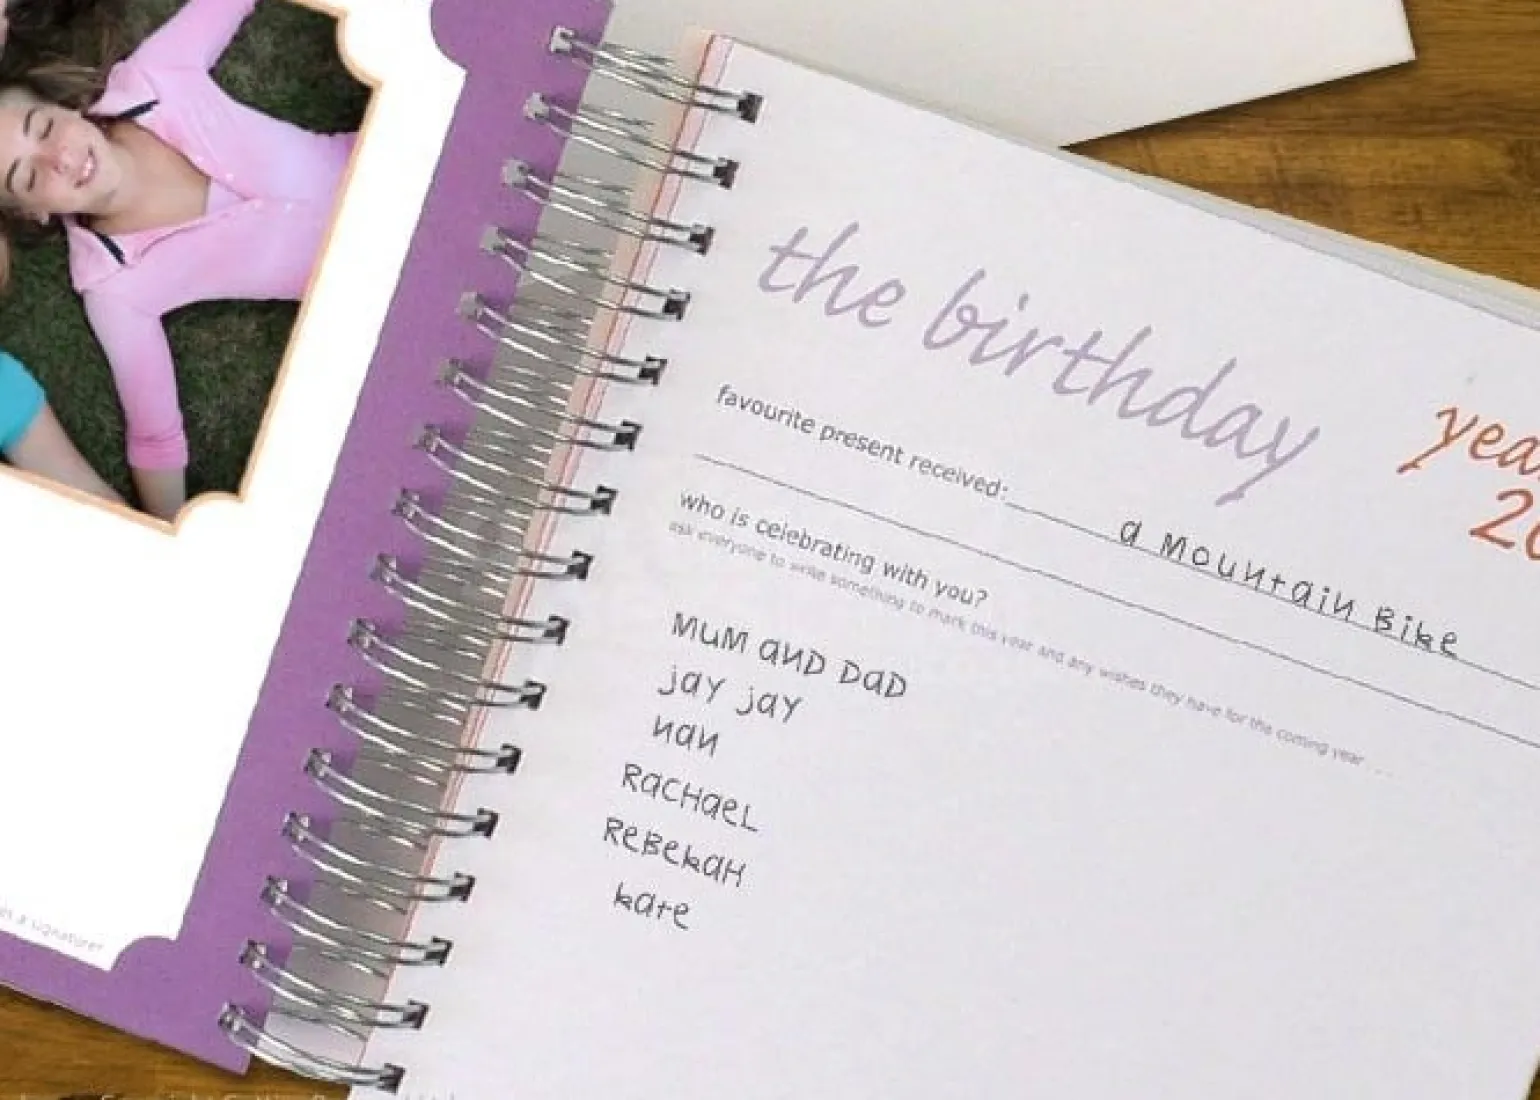 the birthday
yea
20
favourite present received: a mountain Bike
who is celebrating with you?
ask everyone to write something to mark this year and any wishes they have for the coming year . . .
MUM aND DaD
jay jay
nan
RacHaeL
ReBekaH
kate
as a signature?